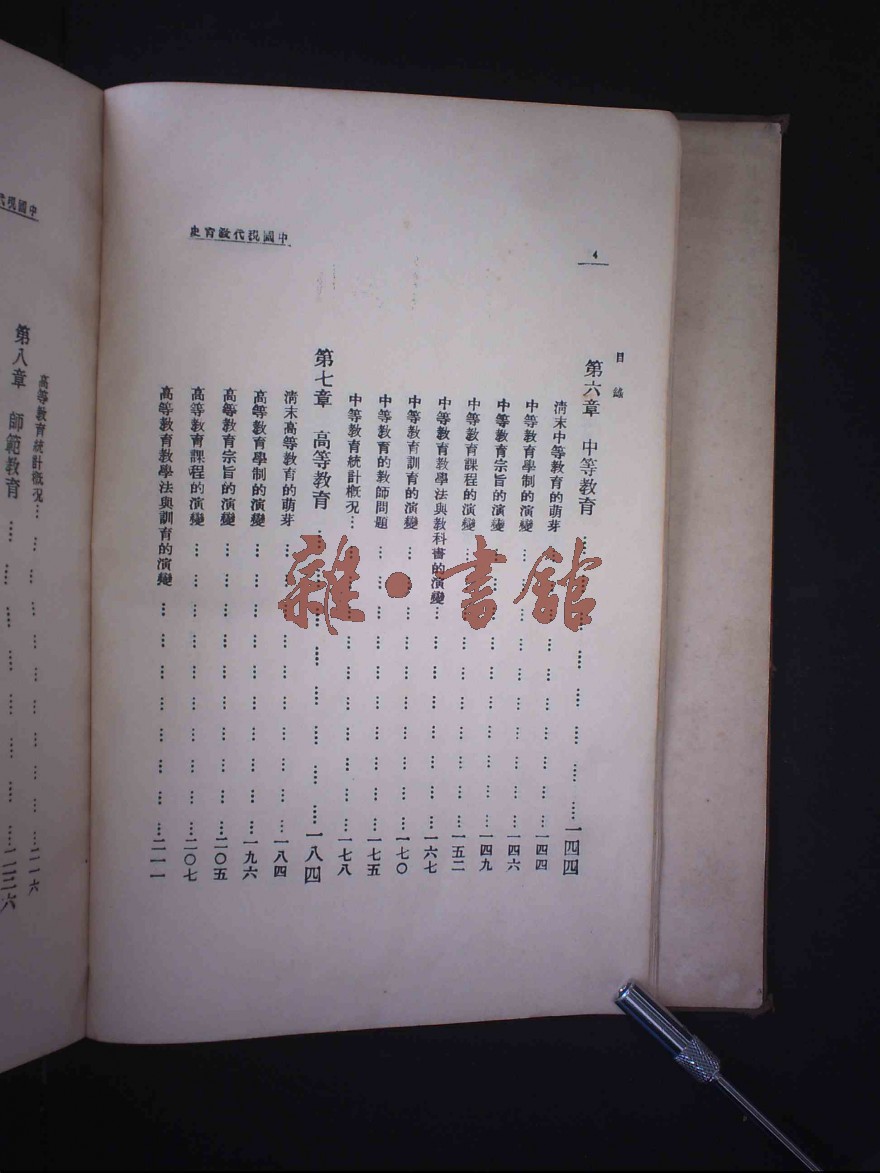 中國現代教育史
4
目錄
第六章 中等教育……一四四
清末中等教育的萌芽……一四四
中等教育學制的演變……一四六
中等教育宗旨的演變……一四九
中等教育課程的演變……一五二
中等教育教學法與教科書的演變……一六七
中等教育訓育的演變……一七〇
中等教育的教師問題……一七五
中等教育統計概况……一七八
第七章 高等教育……一八四
清末高等教育的萌芽……一八四
高等教育學制的演變……一九六
高等教育宗旨的演變……二〇五
高等教育課程的演變……二〇七
高等教育教學法與訓育的演變……二一一
中國現代
高等教育統計概况……二一六
第八章 師範教育……二二六
雜·書館